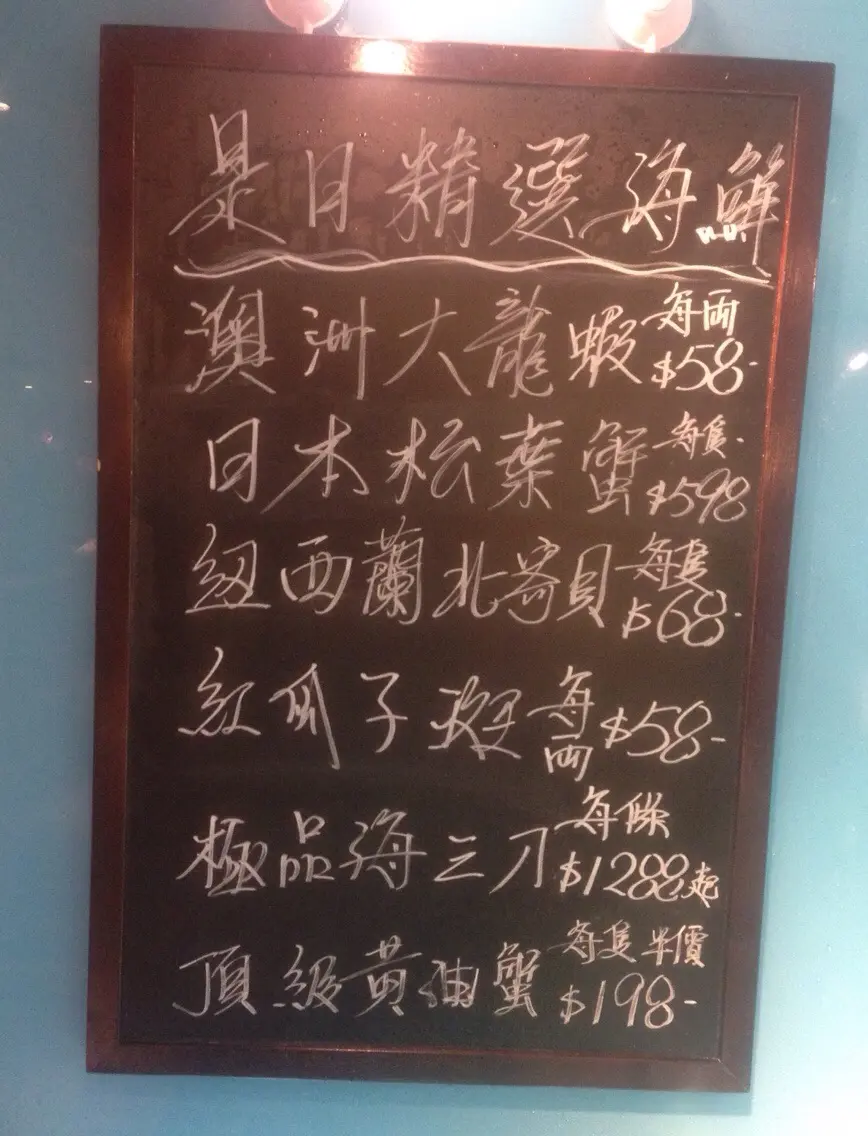 是日精選海鮮
澳洲大龍蝦 每両 $58-
日本松葉蟹 每隻 $598
紐西蘭北寄貝 每隻 $68-
紅瓜子斑 每両 $58-
極品海三刀 每條 $1288起
頂級黃油蟹 每隻半價 $198-